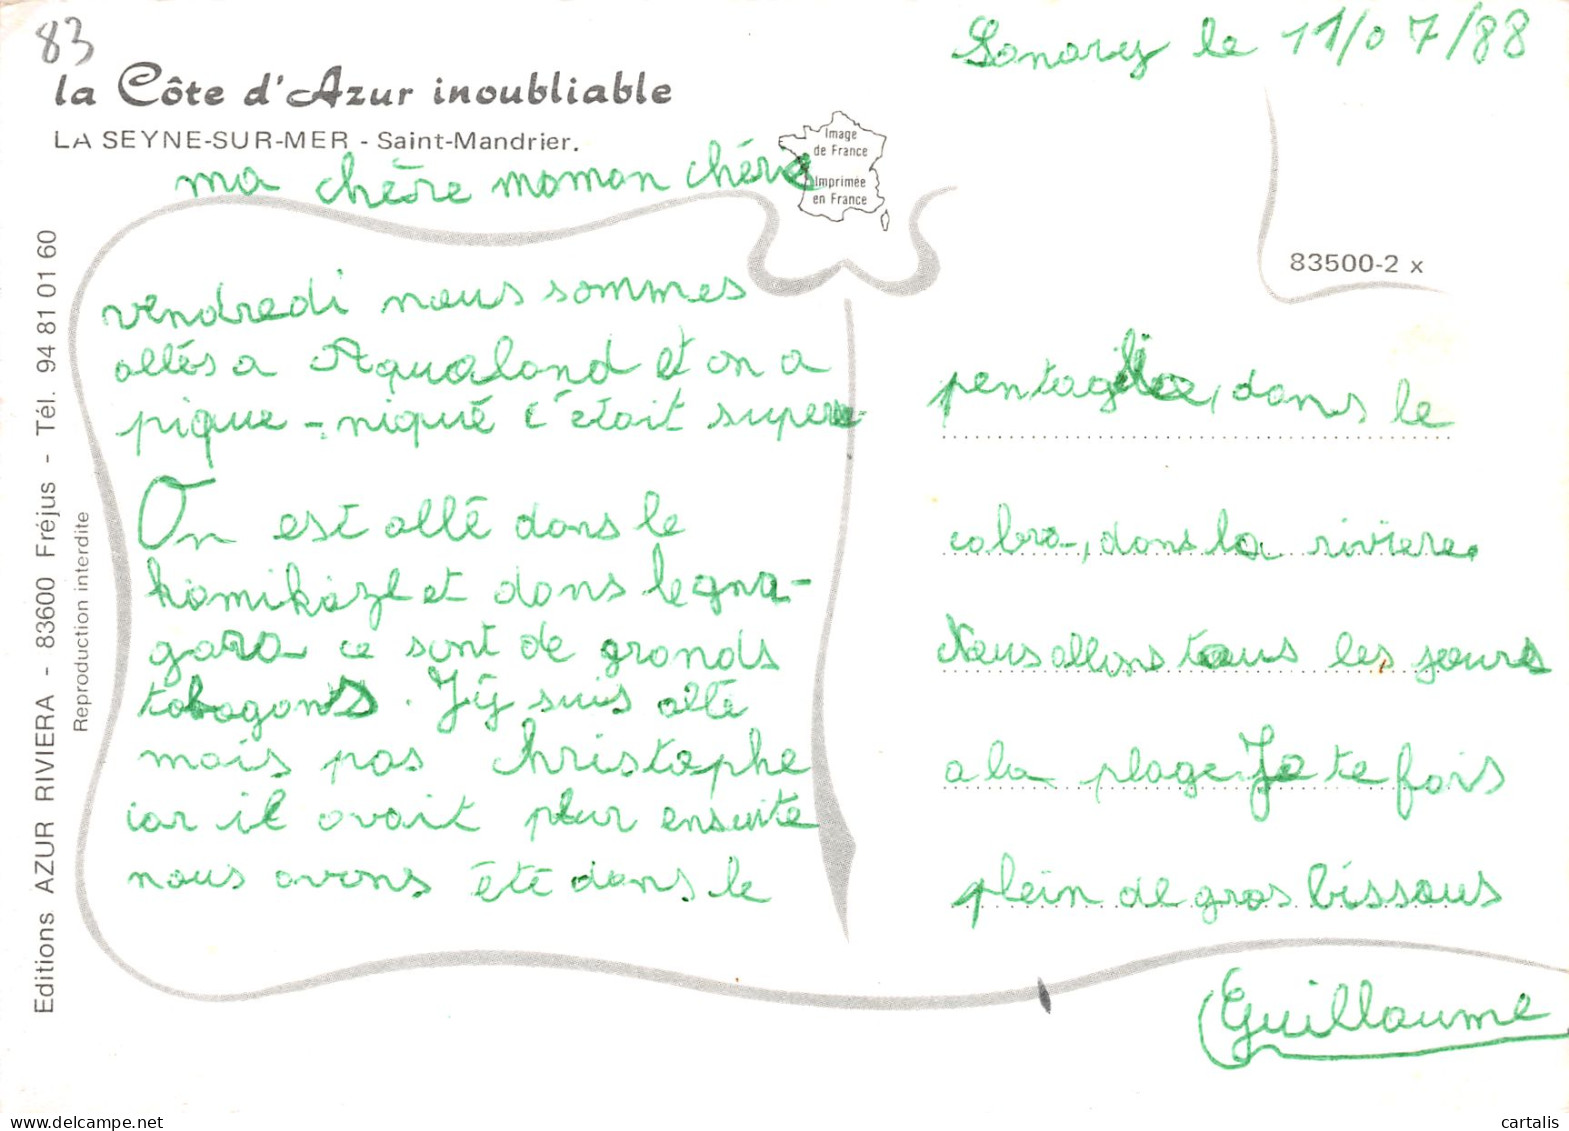 83
Sonary le 11/07/88
la Côte d'Azur inoubliable
LA SEYNE-SUR-MER - Saint-Mandrier.
Image
de France
Imprimée
en France
ma chère maman chérie
83500-2 x
Editions AZUR RIVIERA - 83600 Fréjus - Tél. 94 81 01 60
Reproduction interdite
vendredi nous sommes
allés a Aqualand et on a
pique-niqué c'était super
On est allé dans le
kamikaze et dans le gna-
gara ce sont de grands
tobogans. J'y suis allé
mais pas Christophe
car il avait peur ensuite
nous avons été dans le
dans le
cobra, dans la riviere.
Nous allons tous les jours
a la plage. Je te fais
plein de gros bissous
Guillaume
cartalis